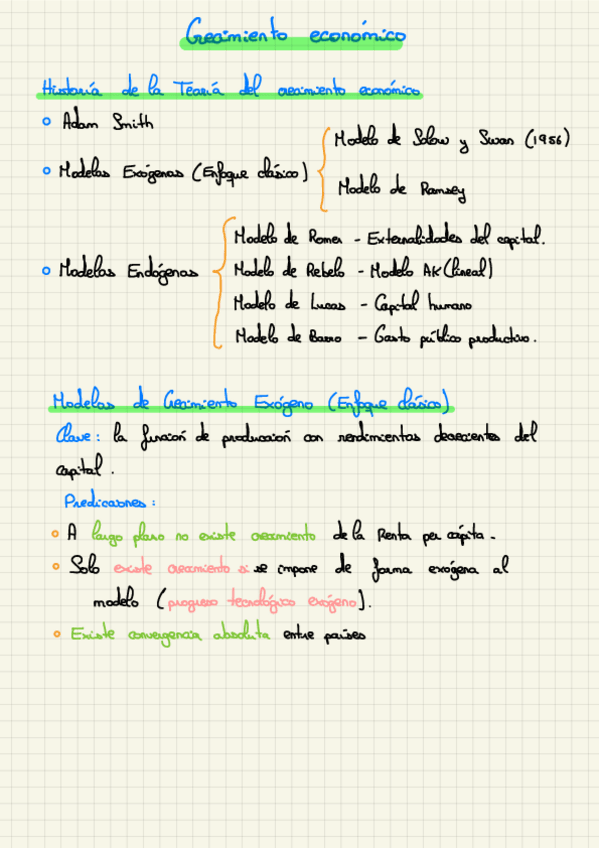 Crecimiento económico
Historia de la Teoría del crecimiento económico
Adam Smith
Modelos Exógenos (Enfoque clásico)
Modelo de Solow y Swan (1956)
Modelo de Ramsey
Modelos Endógenos
Modelo de Romer - Externalidades del capital.
Modelo de Rebelo - Modelo AK (lineal)
Modelo de Lucas - Capital humano
Modelo de Barro - Gasto público productivo.
Modelos de Crecimiento Exógeno (Enfoque clásico)
Clave: la función de producción con rendimientos decrecientes del
capital.
Predicciones:
A largo plazo no existe crecimiento de la Renta per cápita.
Solo existe crecimiento si se impone de forma exógena al
modelo (progreso tecnológico exógeno).
Existe convergencia absoluta entre países